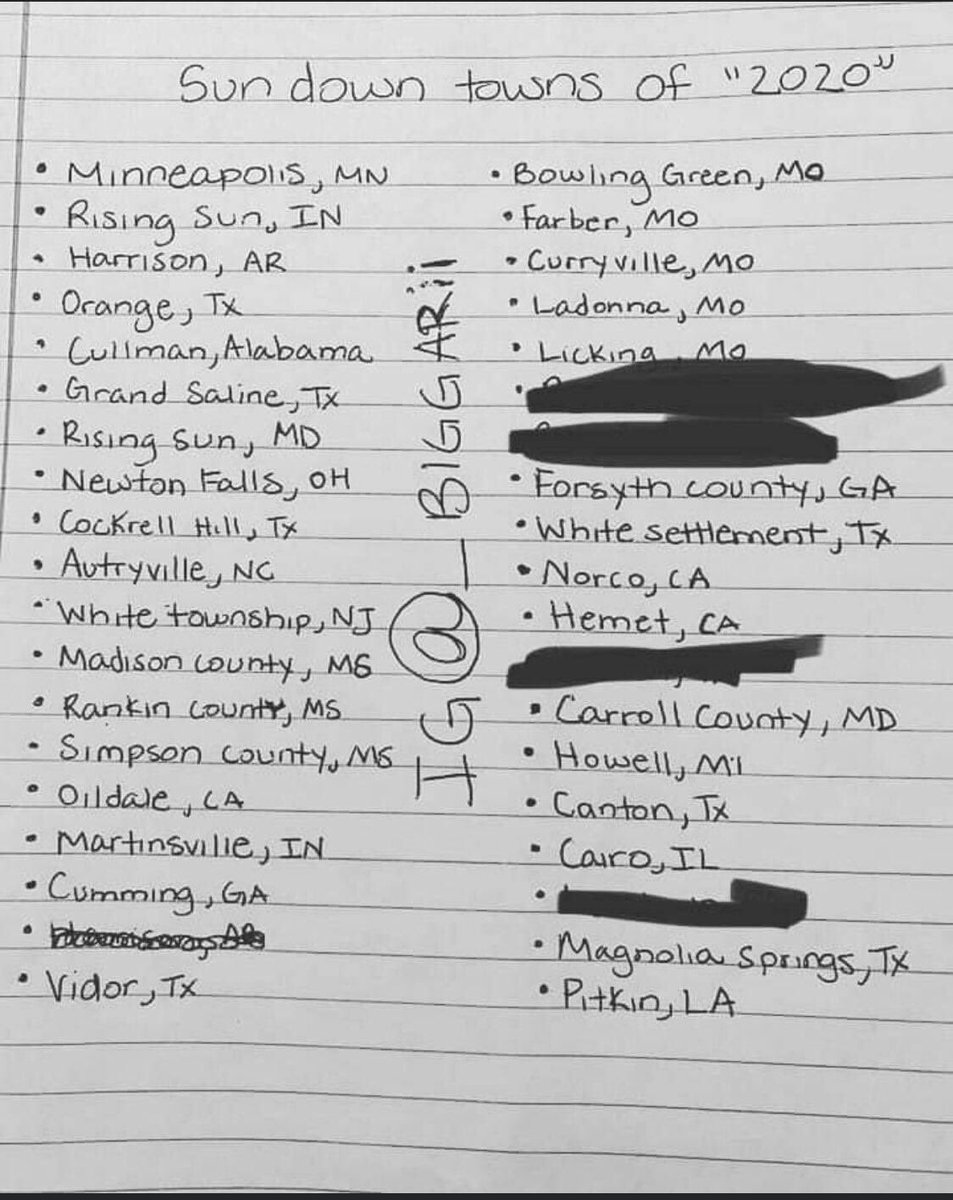 Sun down towns of "2020"
• Minneapolis, MN
• Rising Sun, IN
• Harrison, AR
• Orange, Tx
• Cullman, Alabama
• Grand Saline, Tx
• Rising Sun, MD
• Newton Falls, OH
• Cockrell Hill, Tx
• Autryville, NC
• White township, NJ
• Madison county, MS
• Rankin county, MS
• Simpson county, MS
• Oildale, CA
• Martinsville, IN
• Cumming, GA
• Vidor, Tx
• Bowling Green, MO
• Farber, MO
• Curryville, MO
• Ladonna, MO
• Licking, MO
• Forsyth county, GA
• White settlement, Tx
• Norco, CA
• Hemet, CA
• Carroll County, MD
• Howell, MI
• Canton, Tx
• Cairo, IL
• Magnolia Springs, Tx
• Pitkin, LA